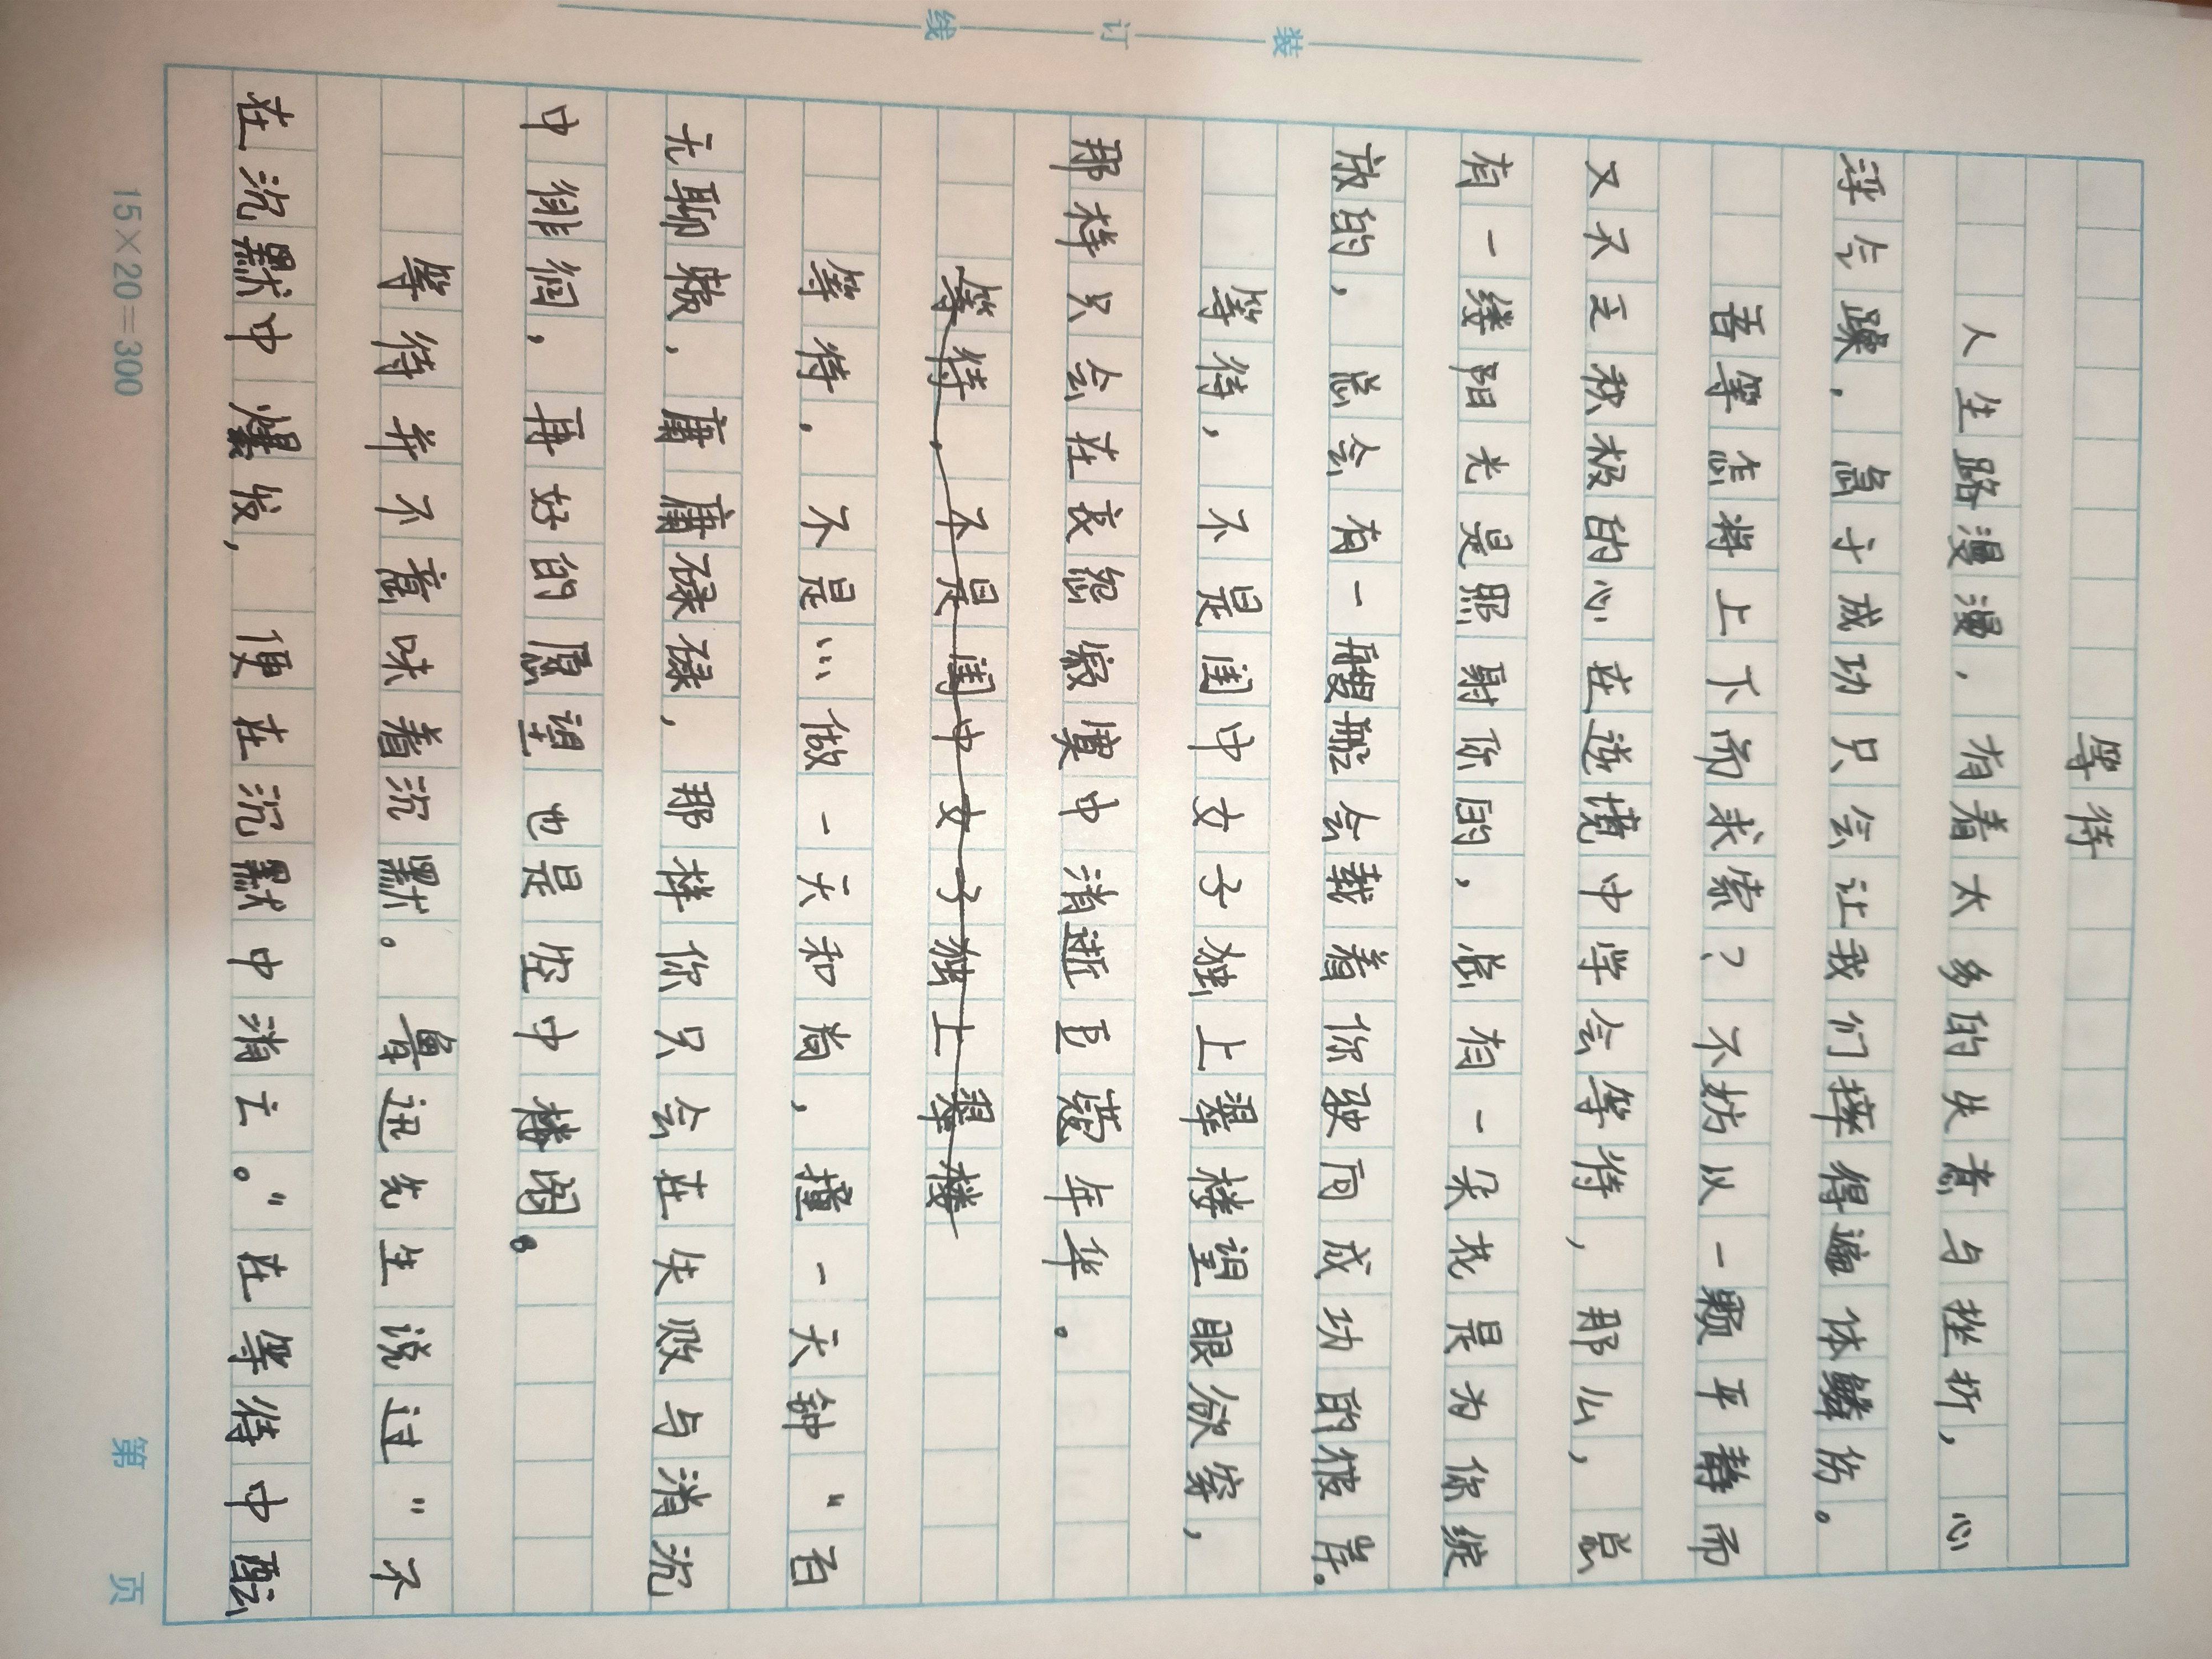 等待
人生路漫漫，有着太多的失意与挫折，心
浮气躁，急于成功只会让我们摔得遍体鳞伤。
吾等怎将上下而求索？不妨以一颗平静而
又不乏积极的心在逆境中学会等待，那么，总
有一缕阳光是照射你的，总有一朵花是为你绽
放的，总会有一艘船会载着你驶向成功的彼岸。
等待，不是闺中女子独上翠楼望眼欲穿，
那样只会在哀怨寂寞中消逝豆蔻年华。
等待，不是闺中女子独上翠楼
等待，不是“做一天和尚，撞一天钟”百
无聊赖，庸庸碌碌，那样你只会在失败与消沉
中徘徊，再好的愿望也是空中楼阁。
等待并不意味着沉默。鲁迅先生说过“不
在沉默中爆发，便在沉默中消亡。”在等待中酝
装订线
15×20=300 第 页